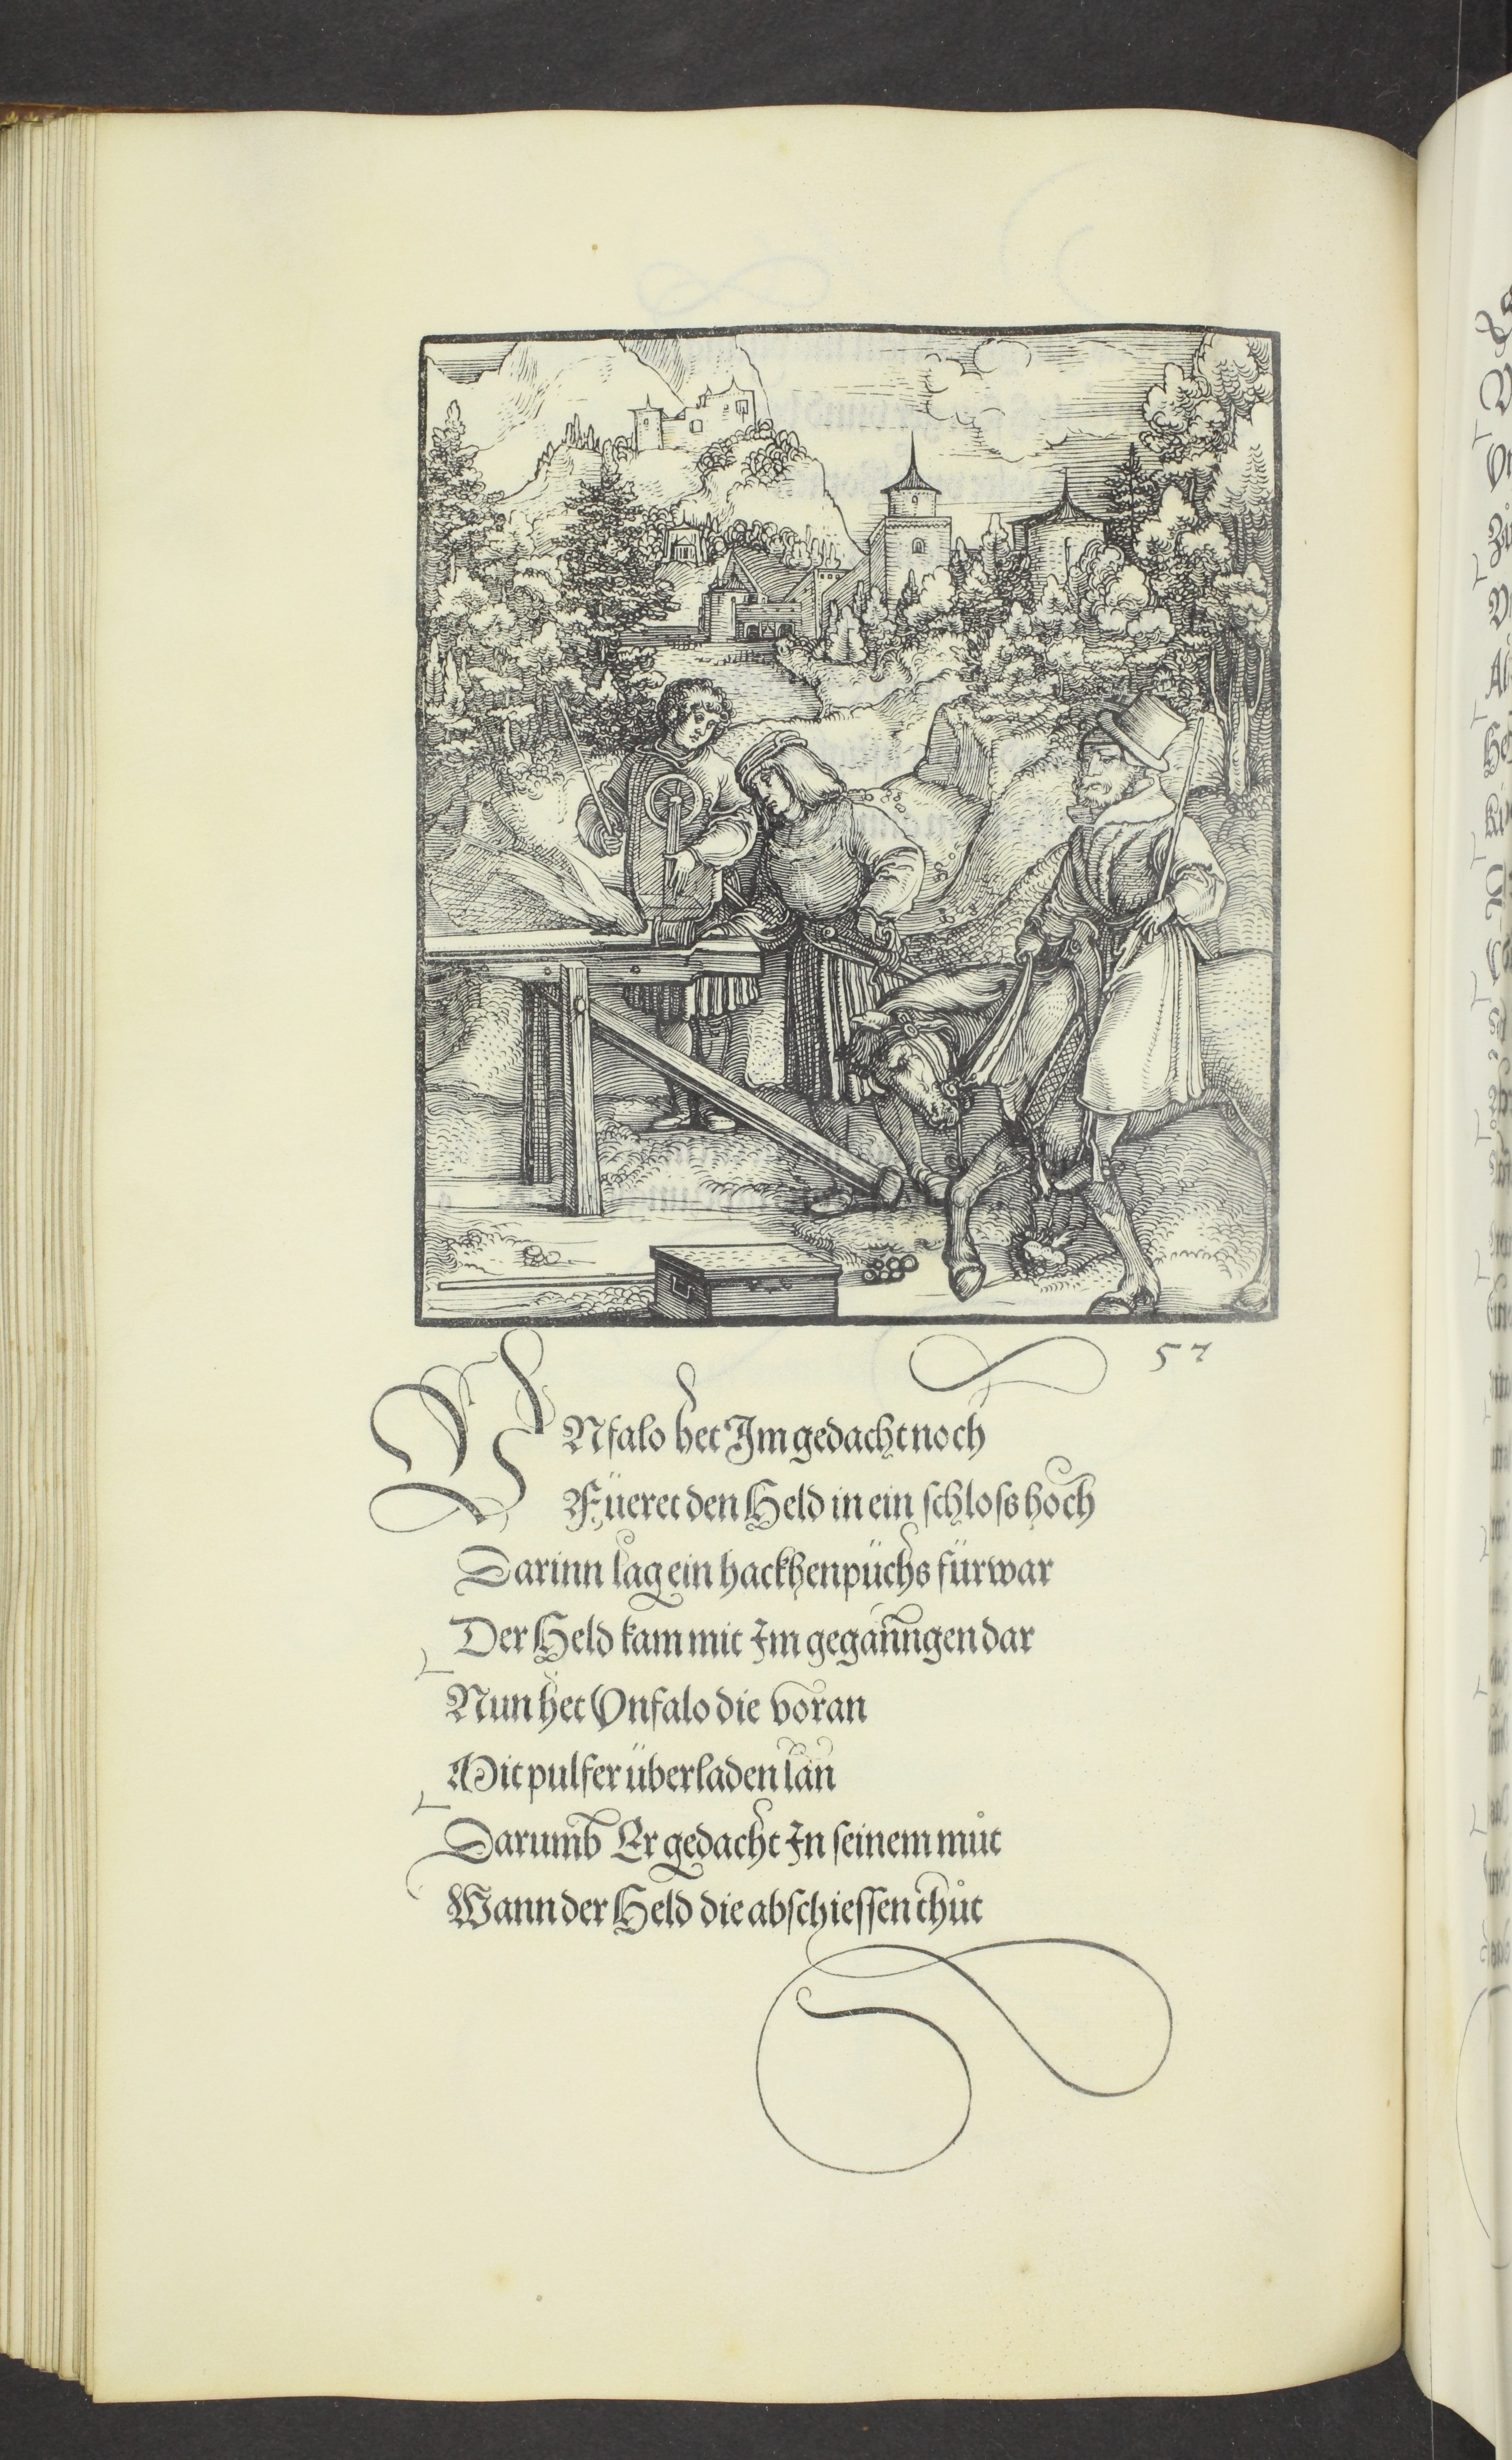 57
VNfalo het Im gedacht noch
Füeret den Held in ein schloss hoch
Darinn lag ein hackhenpüchs fürwar
Der Held kam mit Im geganngen dar
Nun het Vnfalo die voran
Mit pulfer überladen lan
Darumb Er gedacht In seinem můt
Wann der Held die abschiessen thůt